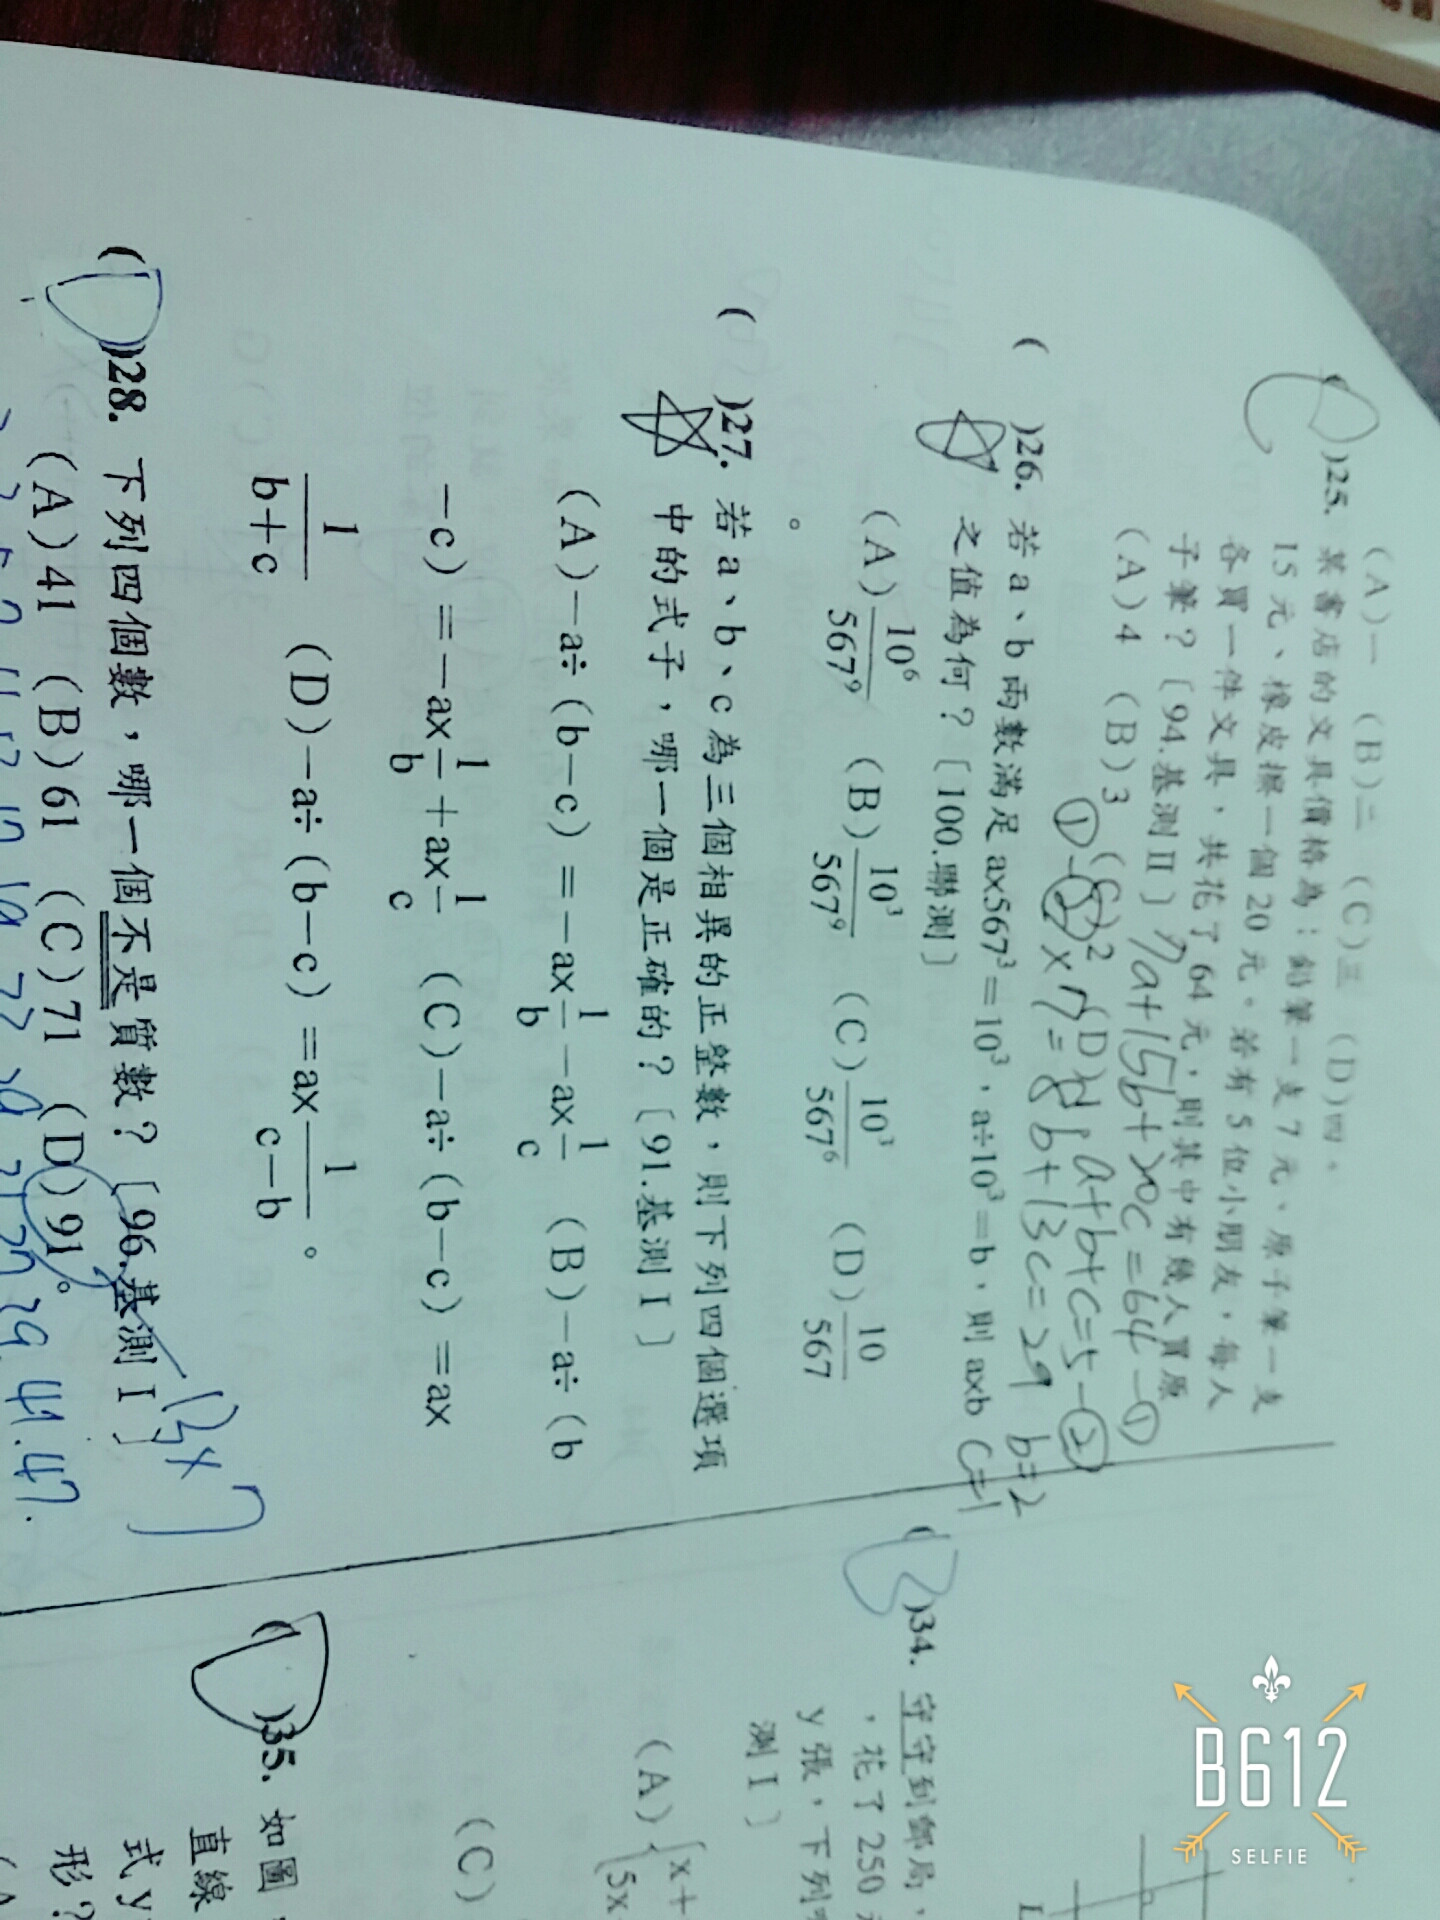 (A)一 (B)二 (C)三 (D)四。
( )25. 某書店的文具價格為：鉛筆一支 7 元、原子筆一支
15 元、橡皮擦一個 20 元。若有 5 位小朋友，每人
各買一件文具，共花了 64 元，則其中有幾人買原
子筆？〔94.基測Ⅱ〕 7a+15b+20c=64-①
(A)4 (B)3 (C)2 (D)1 a+b+c=5-②
①-②×7=8b+13c=29 b=2
c=1
( )26. 若 a、b 兩數滿足 a×567³＝10³，a÷10³＝b，則 a×b
之值為何？〔100.聯測〕
(A)10⁶/567⁹ (B)10³/567⁹ (C)10³/567⁶ (D)10/567
。
( )27. 若 a、b、c 為三個相異的正整數，則下列四個選項
中的式子，哪一個是正確的？〔91.基測Ⅰ〕
(A)－a÷(b－c)＝－a×1/b－a×1/c (B)－a÷(b
－c)＝－a×1/b＋a×1/c (C)－a÷(b－c)＝a×
1/b＋c (D)－a÷(b－c)＝a×1/c－b。
( )28. 下列四個數，哪一個不是質數？〔96.基測Ⅰ〕
13×7
(A)41 (B)61 (C)71 (D)91。
29. 41. 47.
( )34. 守守到郵局，
，花了 250
y 張，下列
測Ⅰ〕
(A) x+
5x
(C)
( )35. 如圖
直線
式 y
形？
B612
SELFIE